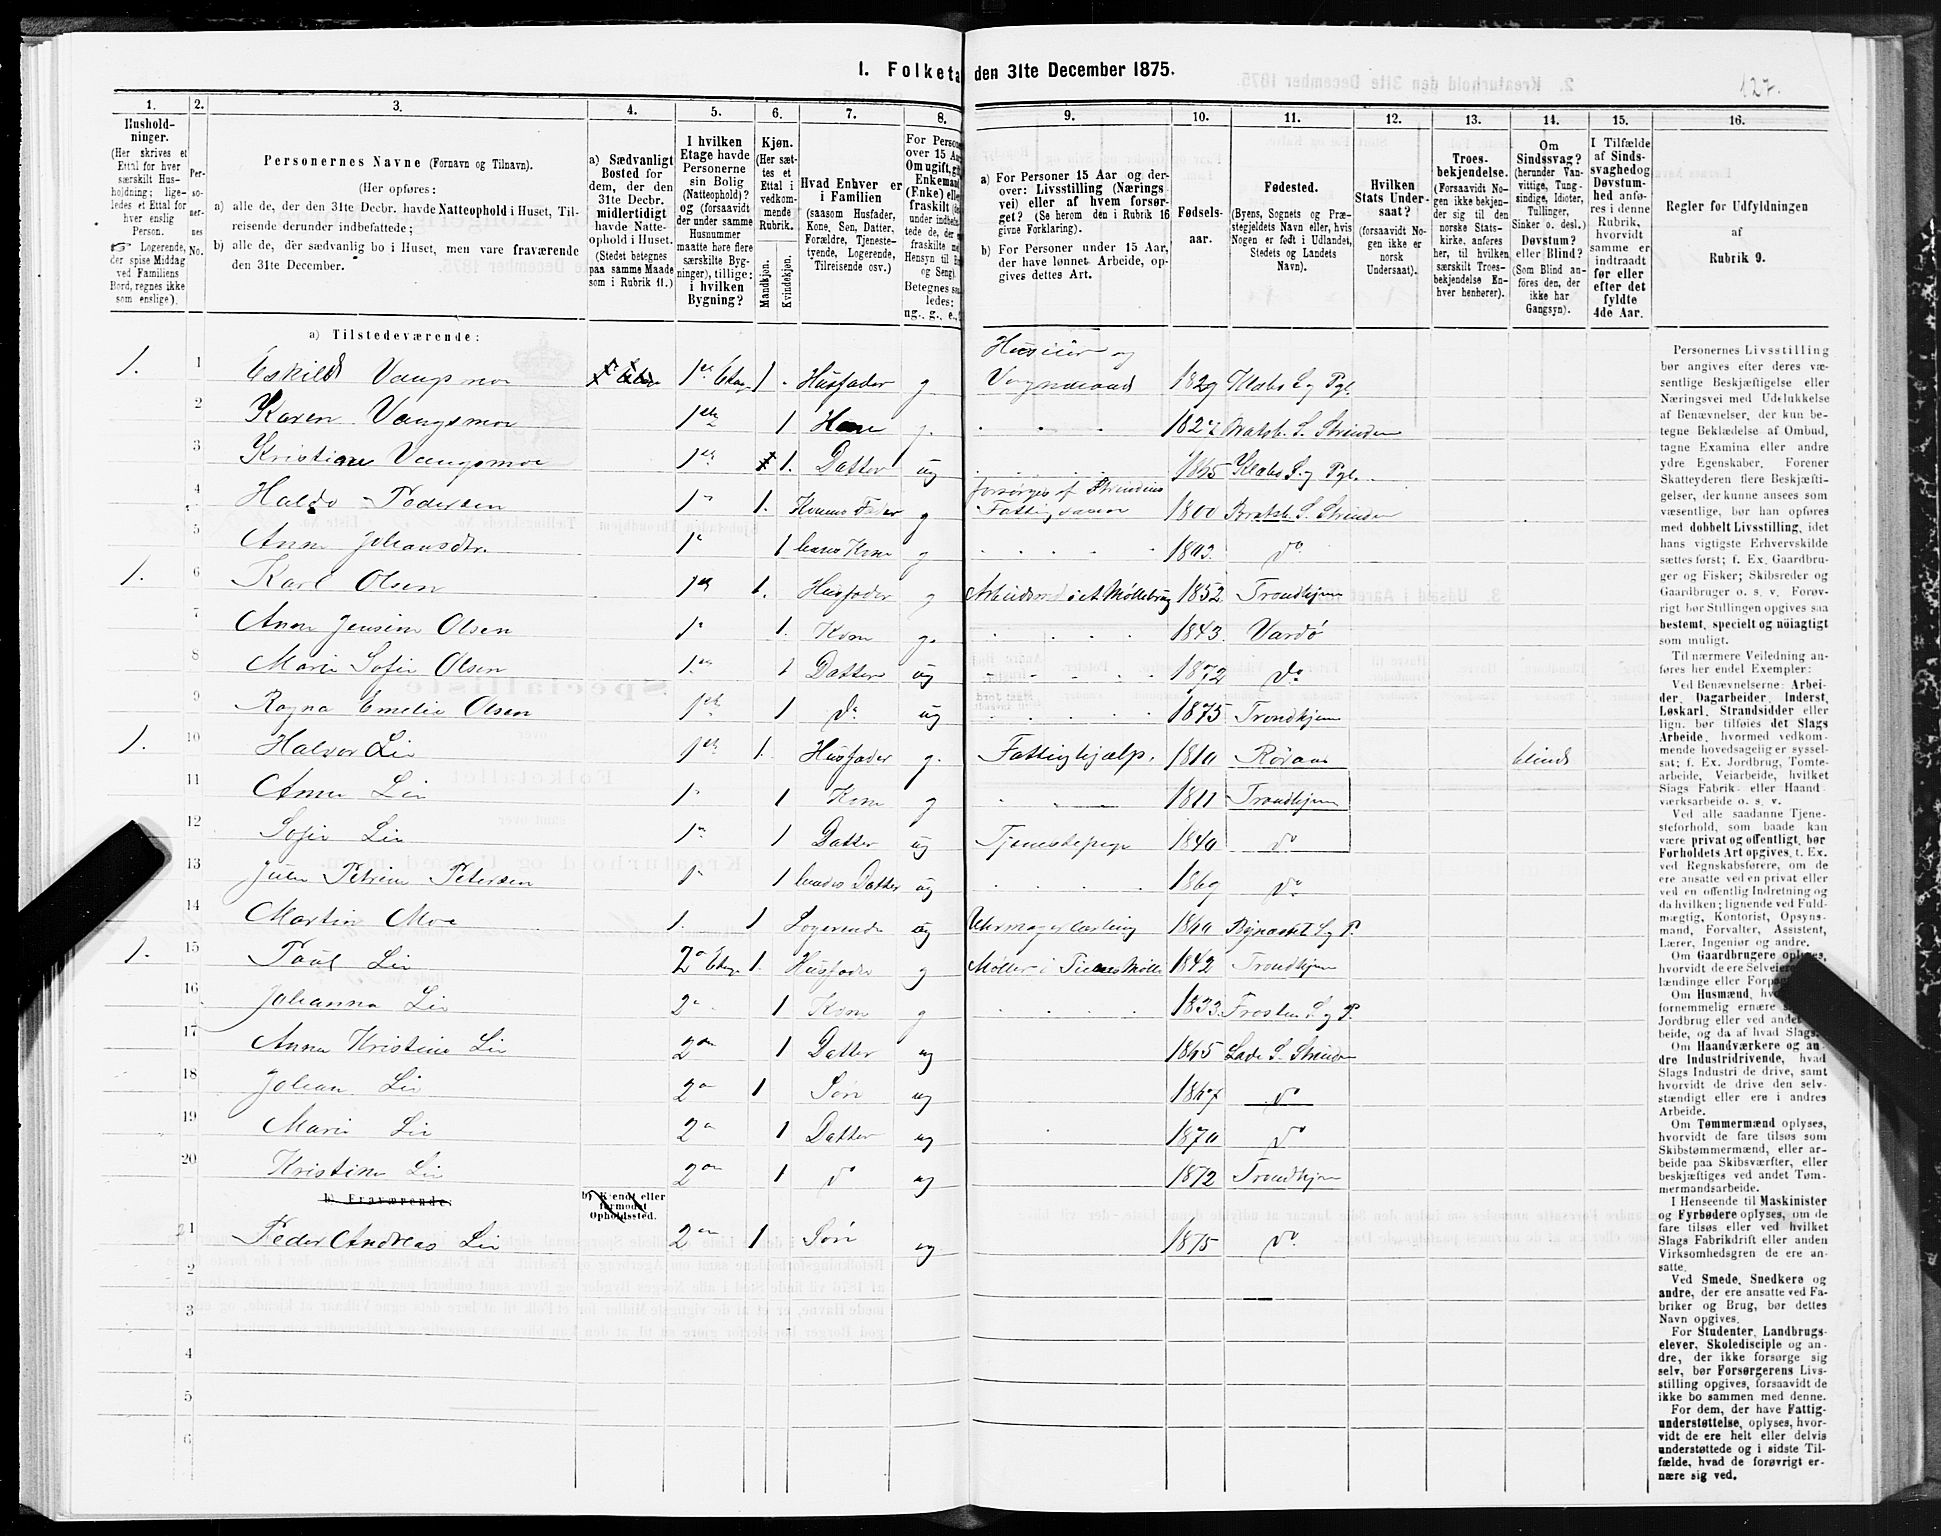 I. Folketa den 31te December 1875.
127.
1.
Hushold-
ninger.
(Her skrives et
Ettal for hver
særskilt Hus-
holdning; lige-
ledes et Ettal for
hver enslig
Person.
Logerende,
der spise Middag
ved Familiens
Bord, regnes ikke
som enslige).
2.
Per-
so-
ner-
nes
No.
3.
Personernes Navne (Fornavn og Tilnavn).
(Her opføres:
a) alle de, der den 31te Decbr. havde Natteophold i Huset, Til-
reisende derunder indbefattede;
b) alle de, der sædvanlig bo i Huset, men vare fraværende
den 31te December.
4.
a) Sædvanligt
Bosted for
dem, der den
31te Decbr.
midlertidigt
havde Natte-
ophold i Huset.
(Stedet betegnes
paa samme Maade
som i Rubrik 11.)
5.
I hvilken
Etage havde
Personerne
sin Bolig
(Natteophold)?
og (forsaavidt
der under samme
Husnummer
maatte høre flere
særskilte Byg-
ninger), tillige:
i hvilken
Bygning?
6.
Kjøn.
(Her sæt-
tes et
Ettal i
vedkom-
mende
Rubrik.
Mandkjøn.
Kvindekjøn.
7.
Hvad Enhver er
i Familien
(saasom Husfader,
Kone, Søn, Datter,
Forældre, Tjeneste-
tyende, Logerende,
Tilreisende osv.)
8.
For Person
over 15 Aa
Om ugift, gi
Enkemand
(Enke) elle
fraskilt
under indbefat-
tede de, der
fraskilte
Hensyn til B
og Seng).
Betegnes saa
ledes:
ug., g., e.,
9.
a) For Personer 15 Aar og der-
over: Livsstilling (Nærings
vei) eller af hvem forsør-
get? (Se herom den i Rubrik 16
givne Forklaring).
b) For Personer under 15 Aar,
der have lønnet Arbeide, op-
gives dettes Art.
10.
Fødsels-
aar.
11.
Fødested.
(Byens, Sognets og Præ-
stegjeldets Navn eller, hvis
Nogen er født i Udlandet,
Stedets og Landets
Navn).
12.
Hvilken
Stats Under-
saat?
(forsaavidt No-
gen ikke er
norsk
Undersaat).
13.
Troes-
bekjendelse.
(Forsaavidt No-
gen ikke bekjen-
der sig til den
norske Stats-
kirke, anføres
her, til hvilken
særskilt Troes-
bekjendelse En-
hver henhører).
14.
Om
Sindssvag?
(herunder Van-
vittige, Tung-
sindige, Idioter,
Tullinger,
Sinker o. desl.)
Døvstum?
eller Blind?
(Som Blind an-
føres den, der
ikke har
Gangsyn).
15.
I Tilfælde
af Sinds-
svaghed og
Døvstum-
hed anfø-
res i denne
Rubrik,
hvorvidt
samme er
indtraadt
før eller
efter det
fyldte
4de Aar.
16.
Regler for Udfyldningen
af
Rubrik 9.
a) Tilstedeværende:
1. 1 Eskild Vangsmoe 1ste Etag 1 Husfader g. Huseier og Vognmand 1829 Klæbo S. og Pgl.
2 Karen Vangsmoe 1ste 1 Kone g. 1827 Bratsb. S. Strinden
3 Kristiane Vangsmoe 1ste 1. Datter ug 1865 Klæbo S. og Pgl.
4 Haldo Pedersen 1" 1. Konens Fader g forsørges af Strindens Fattigvæsen 1800 Bratsb. S. Strinden
5 Anne Johansdtr. 1" 1 hans Kone g 1803. do
1. 6 Karl Olsen 1ste 1. Husfader g Arbeidsmd i et Møllebrug 1852 Trondhjem
7 Anne Jensine Olsen 1" 1. Kone g. 1843. Vardø
8 Marie Sofie Olsen 1" 1 Datter ug 1872 do
9 Ragna Emelie Olsen 1ste 1 do ug 1875 Trondhjem
1. 10 Halvor Lie 1ste 1. Husfader g. Fattighjælp. 1810 Røraas blind
11 Anne Lie 1" 1 Kone g 1811 Trondhjem
12 Sofie Lie 1" 1 Datter ug Tjenestepige 1840 do
13 Julie Petrine Petersen 1" 1 hendes Datter ug 1869 do
14 Martin Moe 1. 1 Logerende ug Uhrmagerlærling 1860 Bynæsset S. og P.
1. 15 Paul Lie 2n Etage 1. Husfader g Møller i Mølle 1842 Trondhjem
16 Johanna Lie 2n 1 Kone g 1833. Frosten S. og P.
17 Anna Kristine Lie 2den 1 Datter ug 1865 Lade S. Strinden
18 Johan Lie 2n 1 Søn ug 1867 do
19 Marie Lie 2n 1 Datter ug 1870 do
20 Kristine Lie 2den 1 do ug 1872 Trondhjem
b) Fraværende:
b) Kjendt eller
formodet
Opholdssted.
21 Peder Andreas Lie 2den 1 Søn ug 1875 do.
2
3
4
5
6
Personernes Livsstilling
bør angives efter deres væ-
sentlige Beskjæftigelse eller
Næringsvei med Udelukkelse
af Benævnelser, der kun be-
tegne Beklædelse af Ombud,
tagne Examina eller andre
ydre Egenskaber. Forener
Skatteyderen flere Beskjæfti-
gelser, der kunne ansees som
væsentlige, bør han opføres
med dobbelt Livsstilling, idet
hans vigtigste Erhvervskilde
sættes først; f. Ex. Gaardbru-
ger og Fisker; Skibsreder og
Gaardbruger o. s. v. Forøv-
rigt bør Stillingen opgives saa
bestemt, specielt og nøiagtigt
som muligt.
Til nærmere Veiledning an-
føres her endel Exempler:
Ved Benævnelserne: Arbei-
der, Dagarbeider, Inderst,
Løskarl, Strandsidder eller
lign. bør tilføies det Slags
Arbeide, hvormed vedkom-
mende hovedsagelig er syssel-
sat; f. Ex. Jordbrug, Tomte-
arbeide, Veiarbeide, hvilket
Slags Fabrik- eller Haand-
værksarbeide o. s. v.
Ved alle saadanne Tjene-
steforhold, som baade kan
være privat og offentligt, bør
Forholdets Art opgives, t. Ex.
ved Regnskabsførere, om de
ere ansatte ved en privat eller
ved en offentlig Indretning og
da hvilken; lignende ved Fuld-
mægtig, Kontorist, Opsyns-
mand, Forvalter, Assistent,
Lærer, Ingeniør og andre.
Om Gaardbrugere oplyses,
hvorvidt de ere Selveiere
lændinge eller Forpag
Om Husmænd, hv
fornemmelig ernære s
Jordbrug eller ved andet
beide, og da af hvad Slags.
Om Haandværkere og an-
dre Industridrivende, hvad
Slags Industri de drive, samt
hvorvidt de drive den selv-
stændigt eller ere i andres
Arbeide.
Om Tømmermænd oplyses,
hvorvidt de fare tilsøs som
Skibstømmermænd, eller ar-
beide paa Skibsværfter, eller
beskjæftiges ved andet Tøm-
mermandsarbeide.
I Henseende til Maskinister
og Fyrbødere oplyses, om de
fare tilsøs eller ved hvilket
Slags Fabrikdrift eller anden
Virksomhedsgren de ere an-
satte.
Ved Smede, Snedkere og
andre, der ere ansatte ved Fa-
briker og Brug, bør dettes
Navn opgives.
For Studenter, Landbrugs-
elever, Skoledisciple og an-
dre, der ikke forsørge sig
selv, bør Forsørgerens Livs-
stilling opgives, forsaavidt de
ikke bo sammen med denne.
For dem, der have Fattig-
understøttelse, oplyses, hvor-
vidt de ere helt eller delvis
understøttede og i sidste Til-
fælde, hvad de forøvrigt er-
nære sig ved.